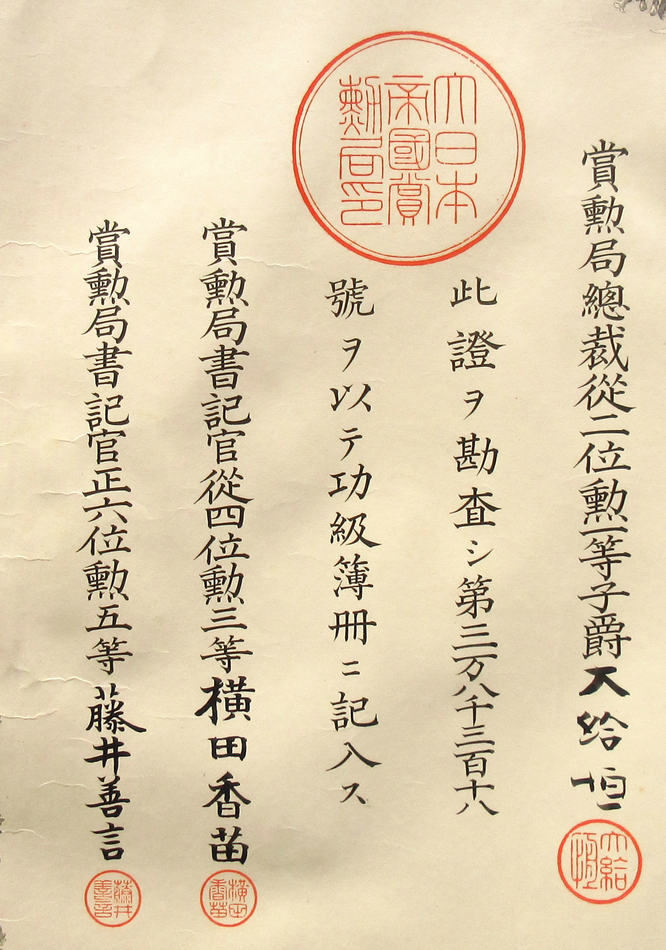 賞勲局總裁從二位勲一等子爵大給恒
大給恒
大日本帝國賞勲局印
此證ヲ勘査シ第三万八千三百十八
號ヲ以テ功級簿冊ニ記入ス
賞勲局書記官從四位勲三等横田香苗
横田香苗
賞勲局書記官正六位勲五等藤井善言
藤井善言